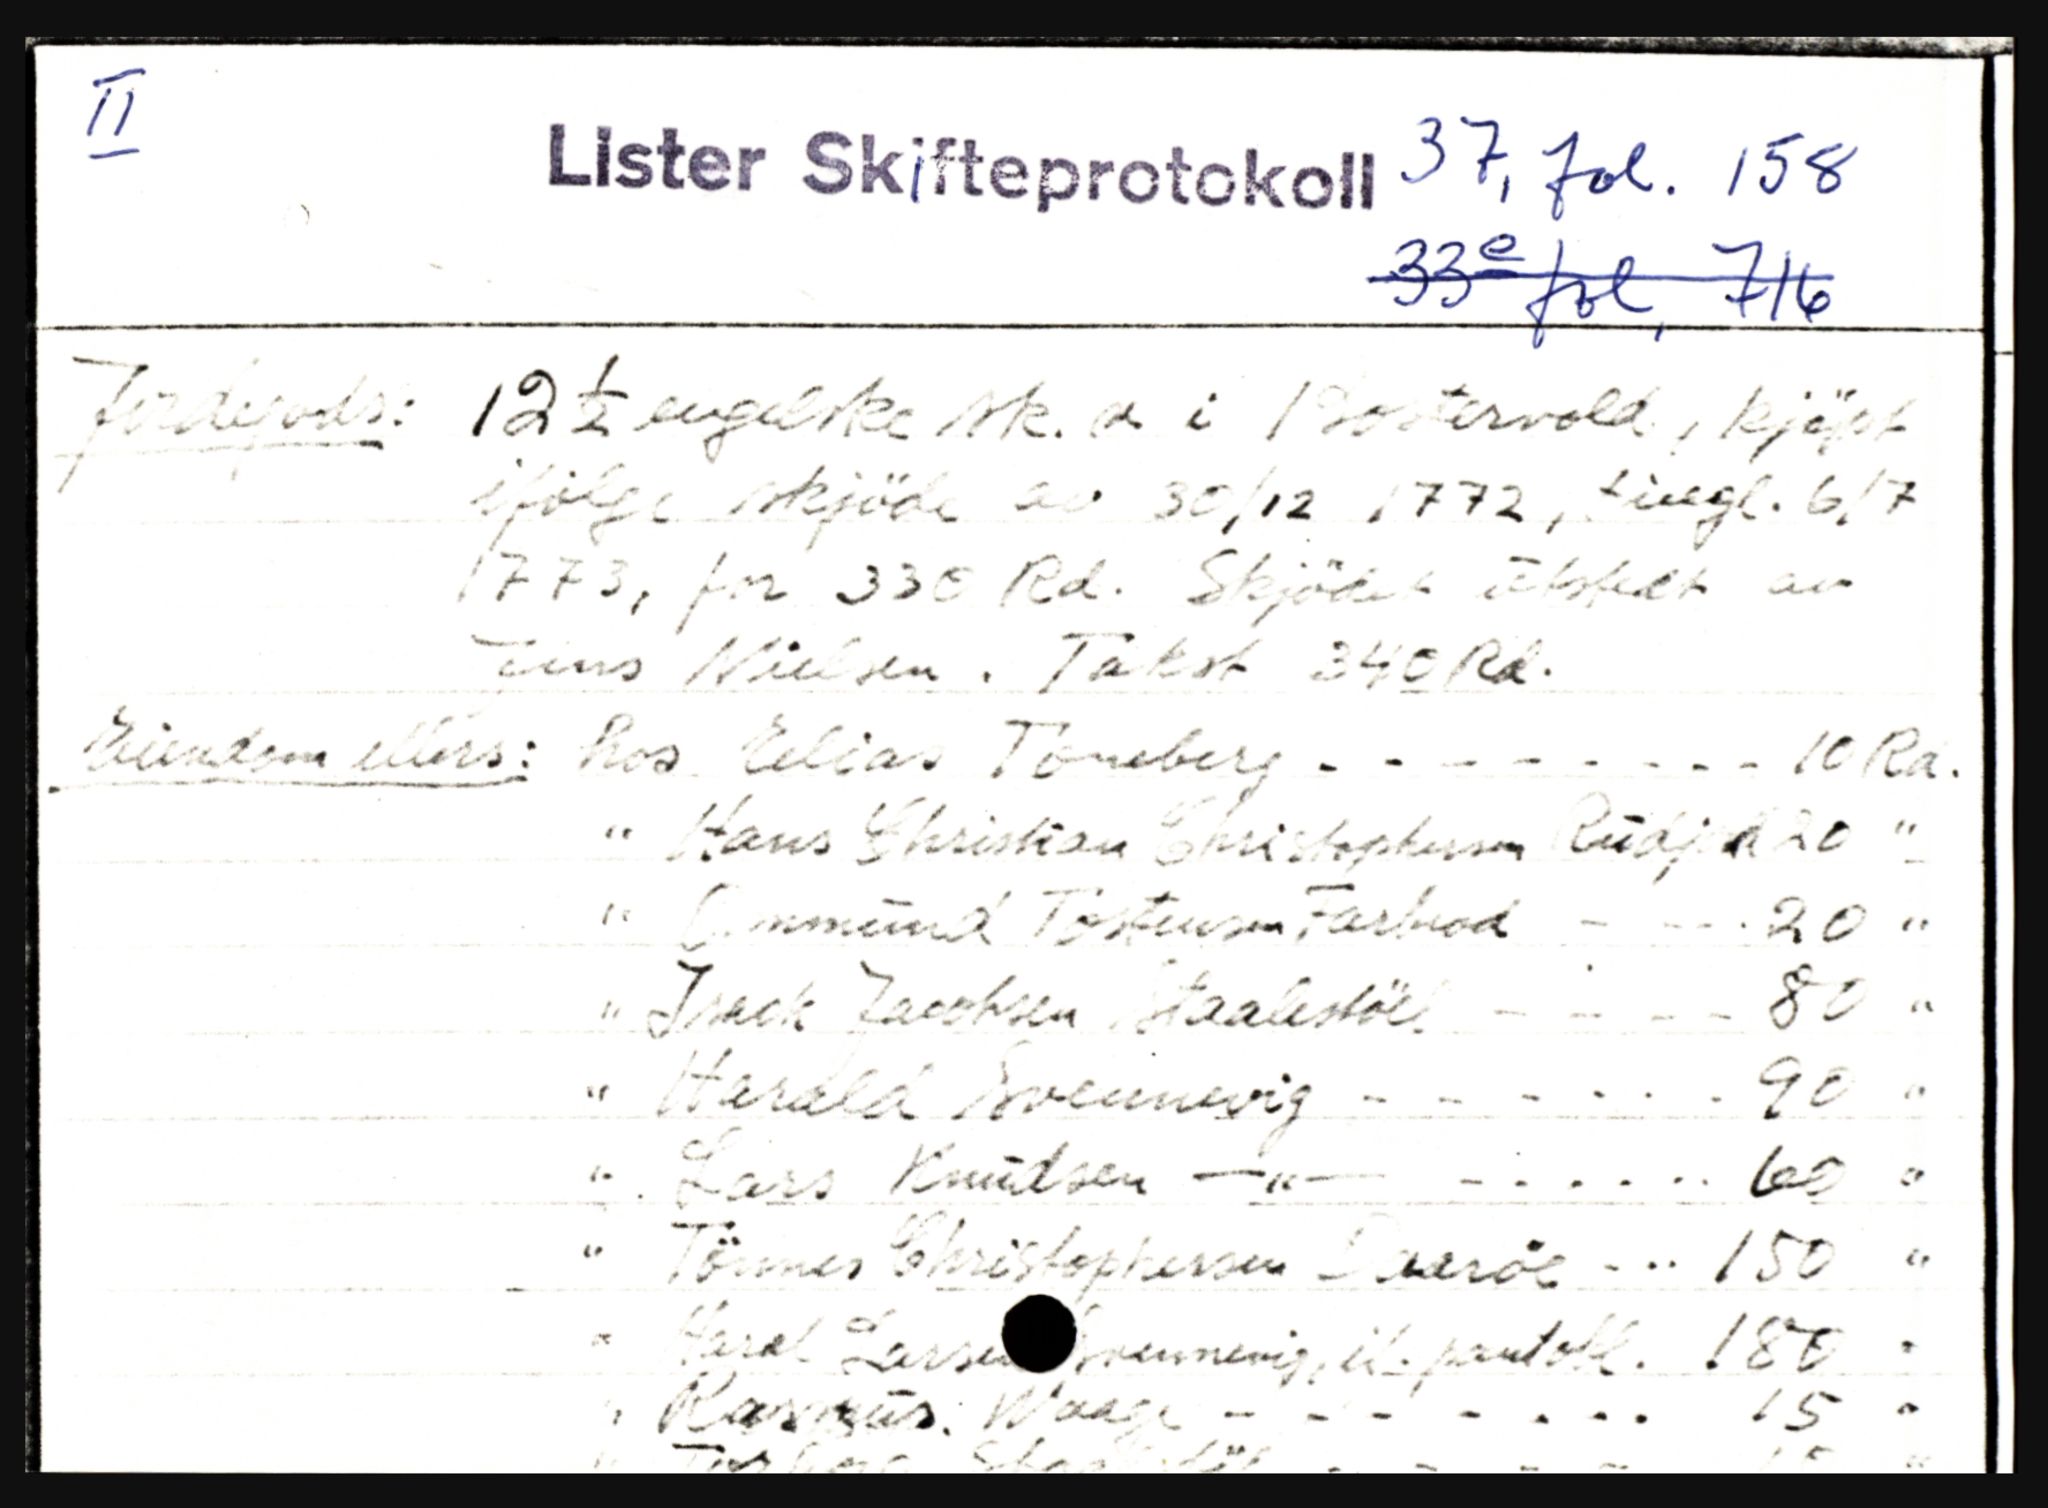 II
Lister Skifteprotokoll 37, fol. 158
33e fol, 716
Jordegods: 12 1/2 engelske sk. i Postervold, kjöpt
ifölge skjöde av 30/12 1772, tingl. 6/7
1773, for 330 Rd. Skjödet utstedt av
Jens Nielsen. Takst 340 Rd.
Eiendom ellers: hos Elias Töneberg - - - - - - - - - 10 Rd.
" Hans Christian Christophersen 20 "
" Ommund Tostensen - - - - 20 "
" Isack Jacobsen Staalestöl - - - - - 80 "
" Harald Svennevig - - - - - - - 90 "
" Lars Knudsen —"— - - - - - - 60 "
" Tönnes Christophersen - - - 150 "
" Larsen Svennevig, il. pantobl. 180 "
" Rasmus Waage - - - - - - - - 15 "